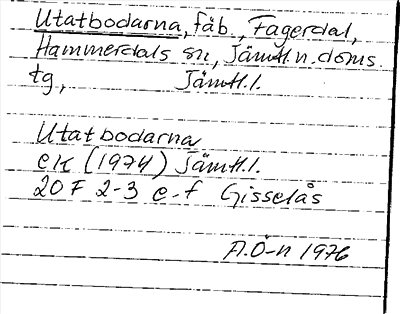 Utatbodarna, fäb., Fagerdal,
Hammerdals sn, Jämtl. n. doms.
tg, Jämtl. l.
Utatbodarna
ek (1974) Jämtl. l.
20F 2-3 e-f Gisselås
A.Ö-n 1976